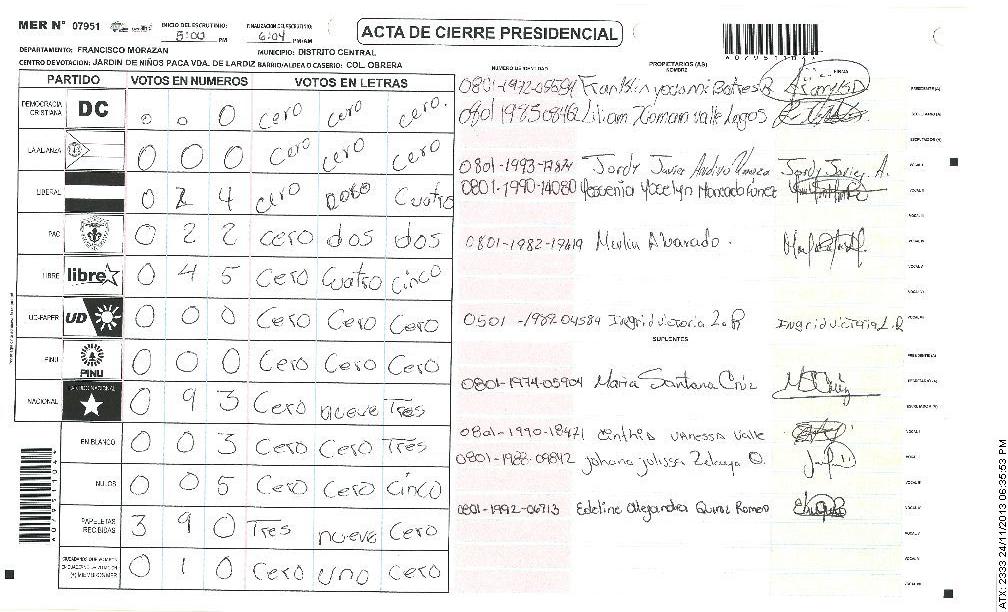 MER N° 07951
INICIO DEL ESCRUTINIO: 5:00 PM
FINALIZACION DEL ESCRUTINIO: 6:04 PM/AM
ACTA DE CIERRE PRESIDENCIAL
A07951104
DEPARTAMENTO: FRANCISCO MORAZAN
MUNICIPIO: DISTRITO CENTRAL
CENTRO DE VOTACION: JARDIN DE NIÑOS PACA VDA. DE LARDIZ BARRIO/ALDEA O CASERIO: COL. OBRERA
PARTIDO VOTOS EN NUMEROS VOTOS EN LETRAS
DEMOCRACIA CRISTIANA DC 0 0 0 cero cero cero.
LA ALIANZA 0 0 0 cero cero cero
LIBERAL 0 4 cero Cuatro
PAC 0 2 2 cero dos dos
LIBRE libre 0 4 5 Cero Cuatro cinco
UD-FAPER UD 0 0 0 Cero Cero Cero
PINU PINU 0 0 0 Cero Cero Cero
NACIONAL PARTIDO NACIONAL 0 9 3 Cero nueve Tres
EN BLANCO 0 0 3 Cero Cero Tres
NULOS 0 0 5 Cero Cero Cinco
PAPELETAS RECIBIDAS 3 9 0 Tres nueve Cero
0 1 0 Cero uno Cero
NUMERO DE IDENTIDAD
PROPIETARIOS (AS)
NOMBRE
FIRMA
Liliam Xomara Valle Lagos
Jordy Javier
0801-1990-14080 Yessenia Yocelyn Moncada Funez
0801-1982- Merlin Alvarado.
0501-1987-04584 Ingrid victoria L.R Ingrid victoria L.R
SUPLENTES
0801-1974-05904 Maria Santana Cruz
0801-1990-18471 Cinthia vanessa valle
0801-1988-09842 Johana julissa Zelaya O.
0801-1992-06713 Edeline Alejandra Quiroz Romero
A07951104
ATX: 2333 24/11/2013 06:35:53 PM